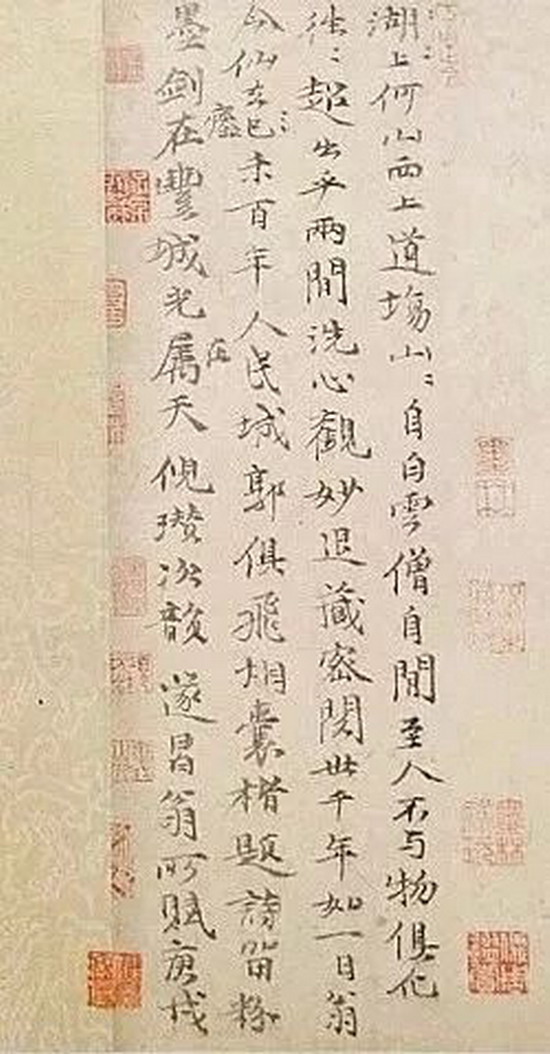 湖〻上〻何山西上道場山〻自白雲僧自閒至人不与物俱化
往〻超出乎兩間洗心觀妙退藏密閱世千年如一日翁
今仙去已〻未百年人民城郭俱飛烟囊楮題詩留粉
墨劍在豐城光属天倪瓚次韻遂昌翁所賦庚戌